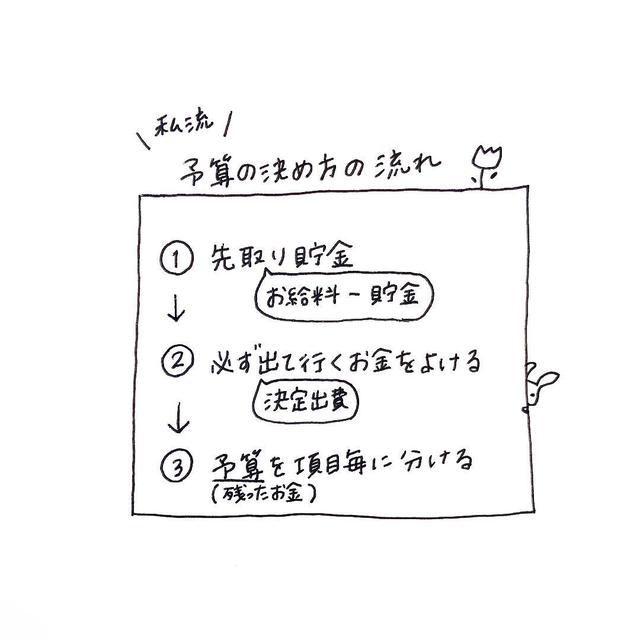 \私流/
予算の決め方の流れ
① 先取り貯金
お給料ー貯金
↓
② 必ず出て行くお金をよける
決定出費
↓
③ 予算を項目毎に分ける
(残ったお金)